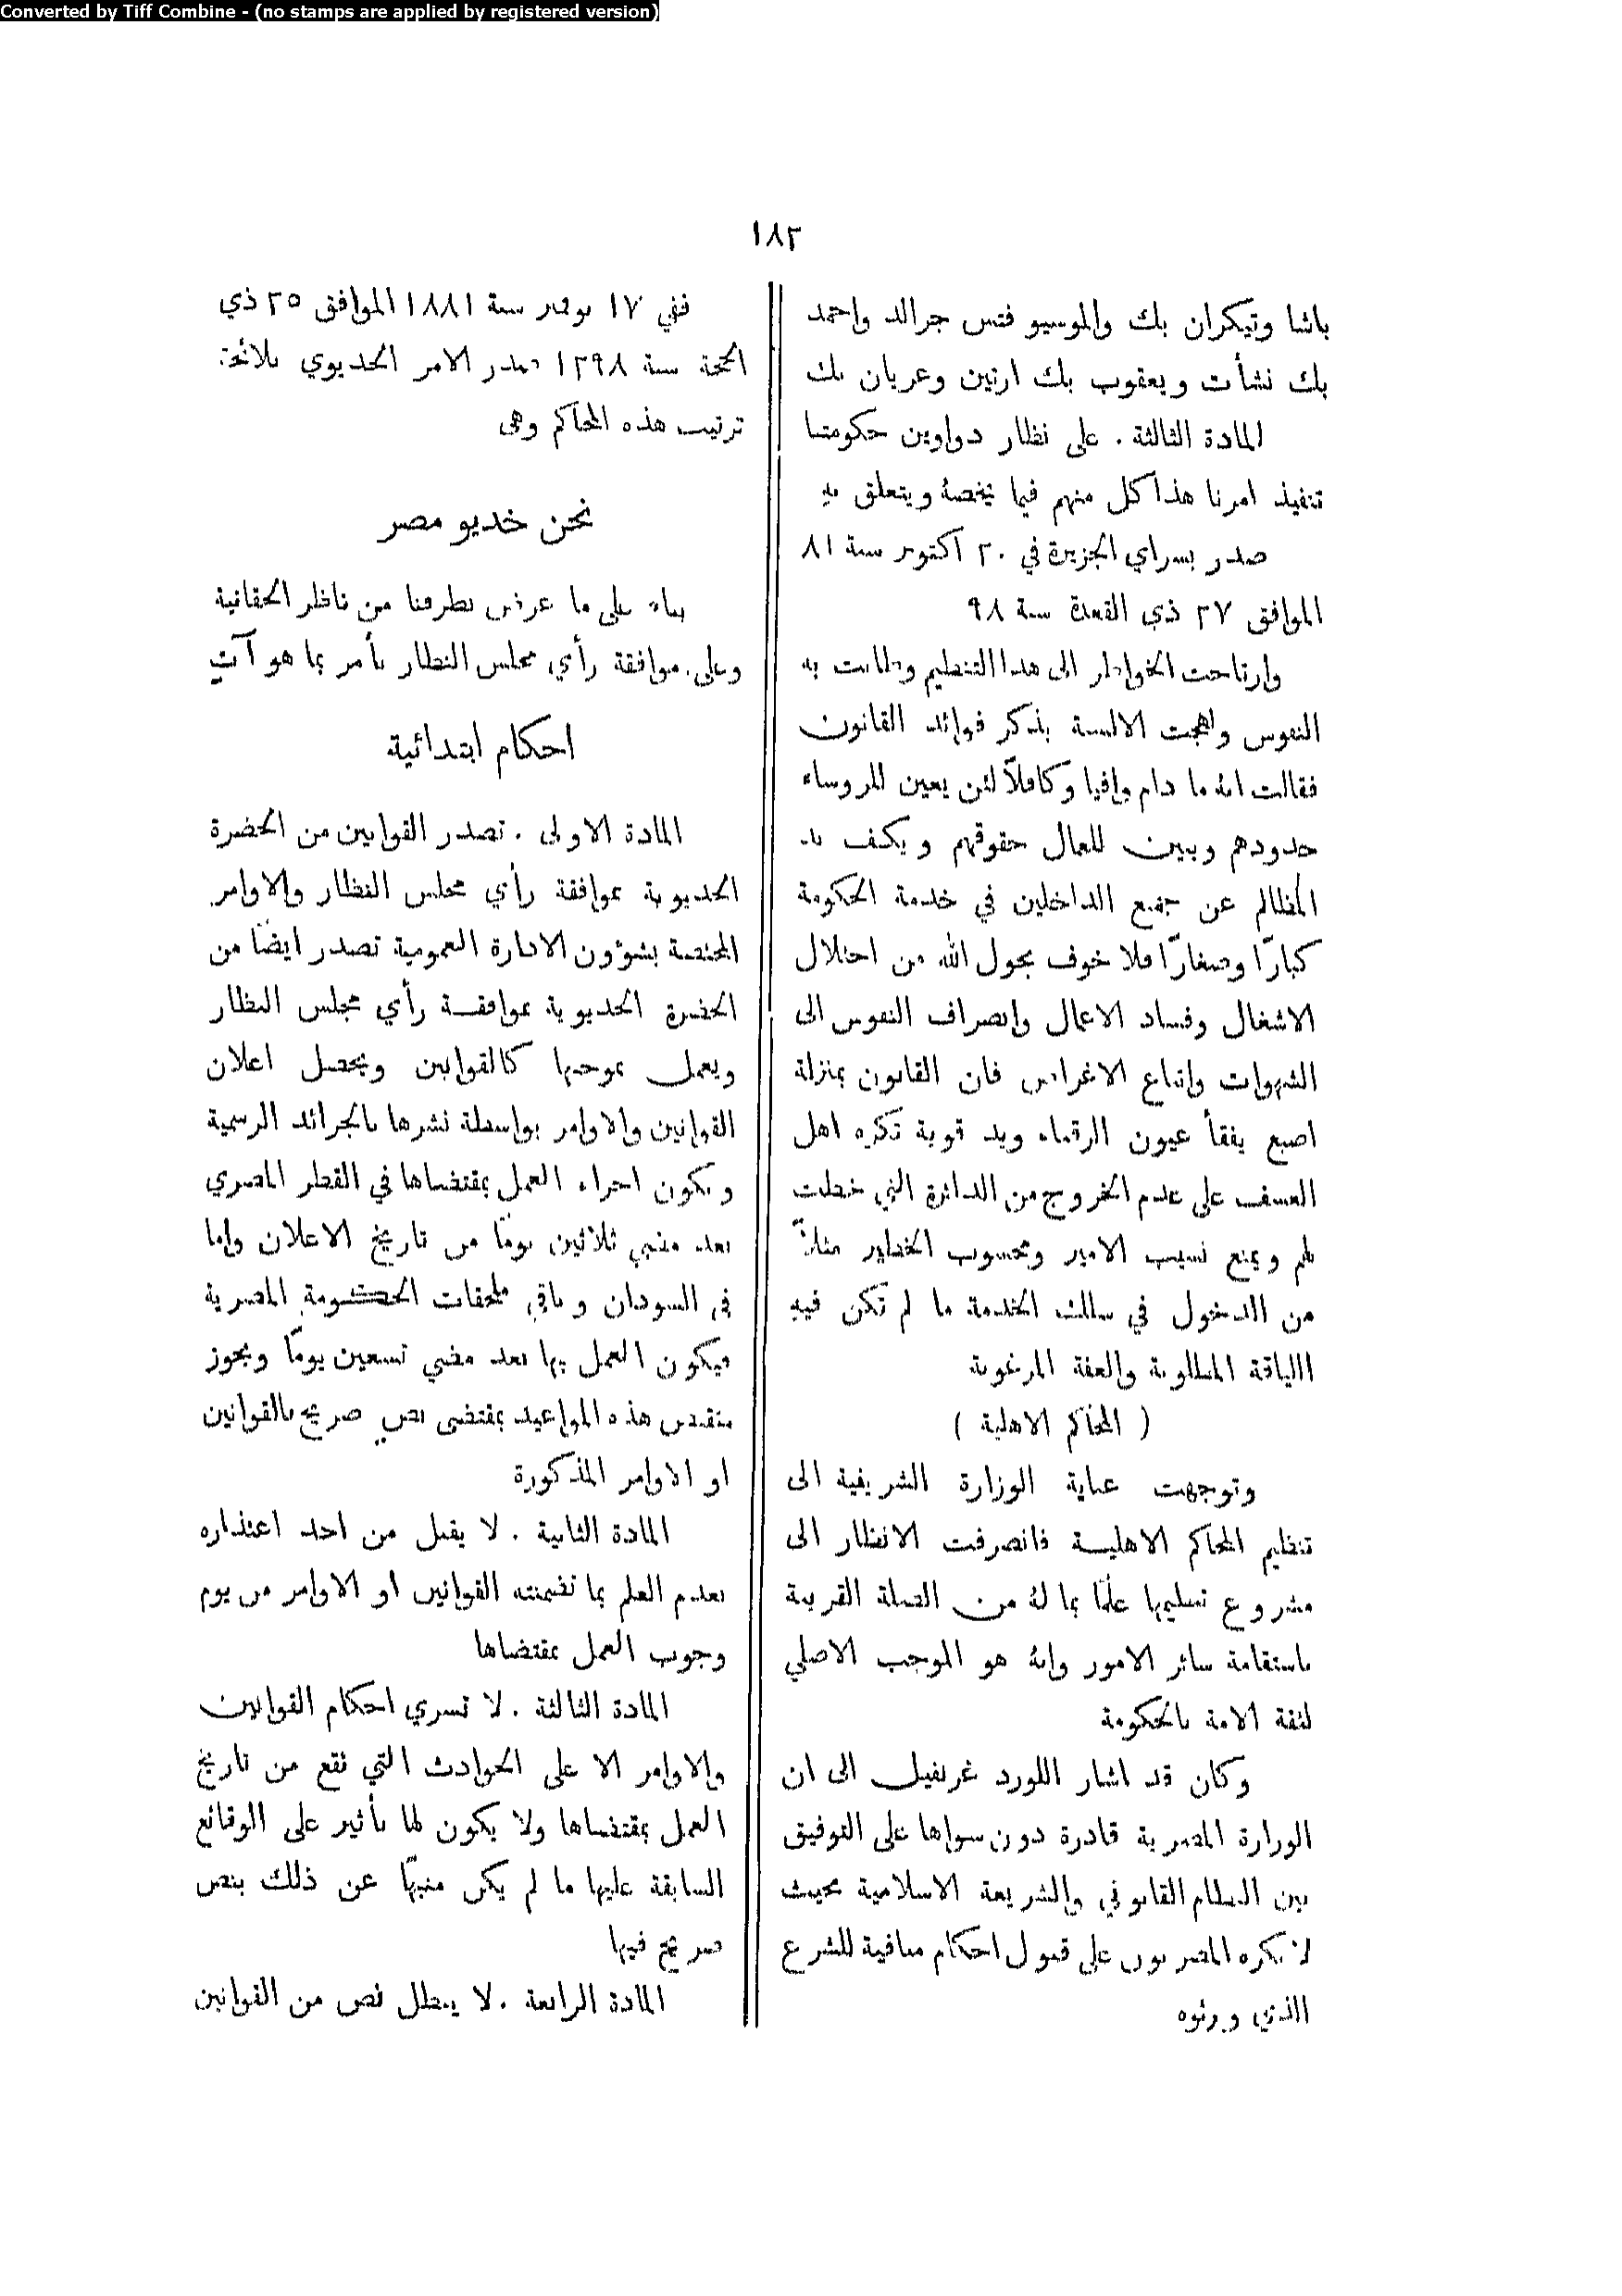 Converted by Tiff Combine - (no stamps are applied by registered version)
١٨٢
باشا وتيكران بك والموسيو فتس جرالد واحمد
بك نشأت ويعقوب بك ارتين وعريان بك
المادة الثالثة . على نظار دواوين حكومتنا
تنفيذ امرنا هذا كل منهم فيما يخصهُ ويتعلق بهِ
صدر بسراي الجزيرة في ٢٠ اكتوبر سنة ٨١
الموافق ٢٧ ذي القعدة سنة ٩٨
وارتاحت الخواطر الى هذا التنظيم وطابت به
النفوس ولهجت الالسنة بذكر فوائد القانون
فقالت انهُ ما دام وافيا وكافلاً لئن يعين للروساء
حدودهم ويبين للعمال حقوقهم ويكف يد
المظالم عن جميع الداخلين في خدمة الحكومة
كبارًا وصغارًا فلا خوف بحول الله من اختلال
الاشغال وفساد الاعمال وانصراف النفوس الى
الشهوات واتباع الاغراض فان القانون بمنزلة
اصبع يفقأ عيون الرقباء ويد قوية تكره اهل
العسف على عدم الخروج من الدائرة التي خطت
لهم ويمنع نسيب الامير ومحسوب الخطير مثلاً
من الدخول في سلك الخدمة ما لم تكن فيهِ
اللياقة المطلوبة والعفة المرغوبة
( المحاكم الاهلية )
وتوجهت عناية الوزارة الشريفية الى
تنظيم المحاكم الاهلية فانصرفت الانظار الى
مشروع تنظيمها علمًا بما لهُ من الصلة القريبة
باستقامة سائر الامور وانهُ هو الموجب الاصلي
لثقة الامة بالحكومة
وكان قد اشار اللورد غرنفيل الى ان
الوزارة المصرية قادرة دون سواها على التوفيق
بين النظام القانوني والشريعة الاسلامية بحيث
لا يكره المصريون على قبول احكام منافية للشرع
الذي ورثوه
ففي ١٧ نوفمبر سنة ١٨٨١ الموافق ٢٥ ذي
الحجة سنة ١٢٩٨ صدر الامر الخديوي بلائحة
ترتيب هذه المحاكم وهي
نحن خديو مصر
بناء على ما عرض بطرفنا من ناظر الحقانية
وعلى موافقة رأي مجلس النظار نأمر بما هو آتٍ
احكام ابتدائية
المادة الاولى . تصدر القوانين من الحضرة
الخديوية بموافقة رأي مجلس النظار والاوامر
المختصة بشؤون الادارة العمومية تصدر ايضًا من
الحضرة الخديوية بموافقة رأي مجلس النظار
ويعمل بموجبها كالقوانين ويحصل اعلان
القوانين والاوامر بواسطة نشرها بالجرائد الرسمية
ويكون اجراء العمل بمقتضاها في القطر المصري
بعد مضي ثلاثين يومًا من تاريخ الاعلان واما
في السودان وباقي ملحقات الحكومة المصرية
فيكون العمل بها بعد مضي تسعين يومًا ويجوز
تنقيص هذه المواعيد بمقتضى نص صريح بالقوانين
او الاوامر المذكورة
المادة الثانية . لا يقبل من احد اعتذاره
بعدم العلم بما تضمنته القوانين او الاوامر من يوم
وجوب العمل بمقتضاها
المادة الثالثة . لا تسري احكام القوانين
والاوامر الا على الحوادث التي تقع من تاريخ
العمل بمقتضاها ولا يكون لها تأثير على الوقائع
السابقة عليها ما لم يكن منبهًا عن ذلك بنص
صريح فيها
المادة الرابعة . لا يبطل نص من القوانين